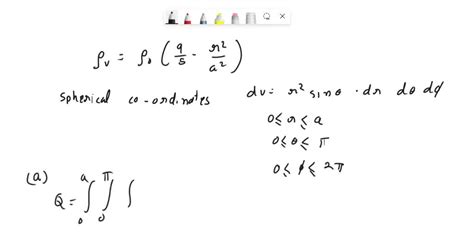 ρv = ρ0 (9/5 - r²/a²)
spherical co-ordinates
dv = r² sinθ · dr dθ dϕ
0 ≤ r ≤ a
0 ≤ θ ≤ π
0 ≤ ϕ ≤ 2π
(a)
Q = ∫₀ᵃ ∫₀^π ∫